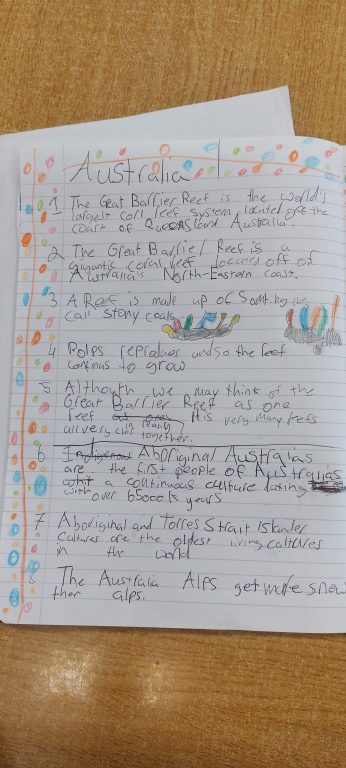 Australia
1 The Geat Barrier Reef is the world's
largest corl reef system, located off the
coast of Queensland Australia.
2 The Great Barrier Reef is a
gigantic coral reef located off of
Australia's North-Eastern coast.
3 A Reef is made up of Something we
call stony corals.
4 Polps reproduces and so the Reef
continus to grow
5 Although we may think of the
Great Barrier Reef as one
Reef its very many Reefs
all very close really
together.
6 Indigenous Aboriginal Australias
are the first people of Australias
with a continuous culture lasting
over 65000k years
7 Aboriginal and Torres Strait Islander
Cultures are the oldest living caltures
in the world
8 The Australia Alps get more snow
ther alps.